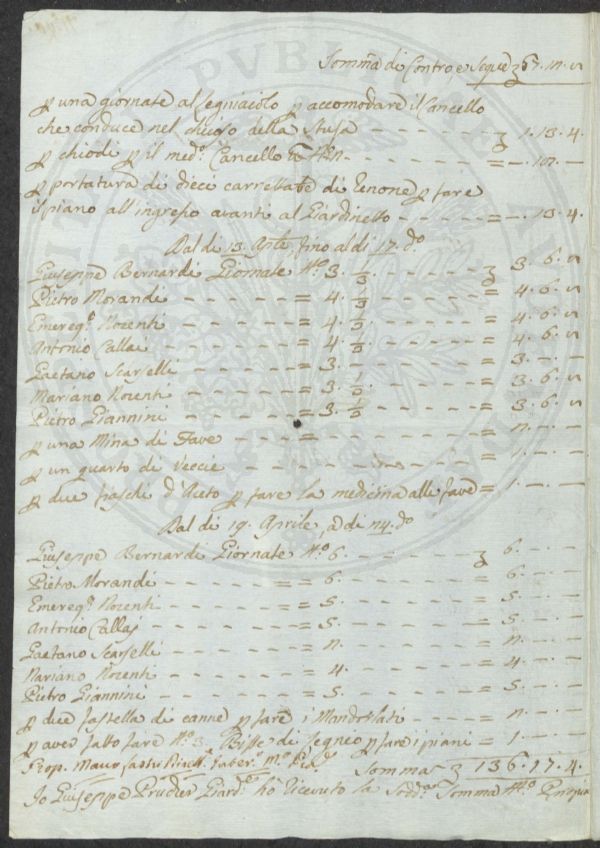 Somma di Contro e Segue 67. 12. 8
p una giornate al legniaiolo p accomodare il Cancello
che conduce nel chiuso della Stufa - - - - - 1. 13. 4.
p chiodi p il med.º Cancello
p portatura di dieci carrettate di Renone p fare
il piano all'ingresso avanti al Giardinetto - - - - - = - . 13. 4
Dal di 13. Aple, fino al di 17. do
Giuseppe Bernardi Giornate Nº 3. 1/3 - - - - 3. 6. 8
Pietro Morandi - - - - - - = 4. 1/3 - - - - = 4. 6. 8
Emereg.º Nozenti - - - - - = 4. 1/3 - - - - = 4. 6. 8
Antonio Callai - - - - - - = 4. 1/3 - - - - = 4. 6. 8
Gaetano Scarselli - - - - - = 3. - - - - = 3. - . -
Mariano Nozenti - - - - - = 3. 1/3 - - - - = 3. 6. 8
Pietro Giannini - - - - - = 3. 1/3 - - - - = 3. 6. 8
p una Mina di Fave - - - - - - - - = 2. - . -
p un quarto di Veccie - - - - - - - - = 1. - . -
p due fiaschi d'Aceto p fare la medicina alle fave = 1. - . -
Dal di 19. Aprile, a di 24. do
Giuseppe Bernardi Giornate Nº 6. - - - - 6. - . -
Pietro Morandi - - - - - = = 6. - - - - = 6. - . -
Emereg.º Nozenti - - - - - = = 5. - - - - = 5. - . -
Antonio Callai - - - - - = = 5. - - - - = 5. - . -
Gaetano Scarselli - - - - - = = 2. - - - - = 2. - . -
Mariano Nozenti - - - - - = = 4. - - - - = 4. - . -
Pietro Giannini - - - - - = = 5. - - - - = 5. - . -
p due fastella di canne p fare i Mandorlati - - - - = 2. - . -
p aver fatto fare Nº 3. Biffe di legneo p fare i piani = 1. - . -
Somma 136. 17. 4.
Io Giuseppe Prucher Giard.e ho ricevuto la Sodd.a Somma